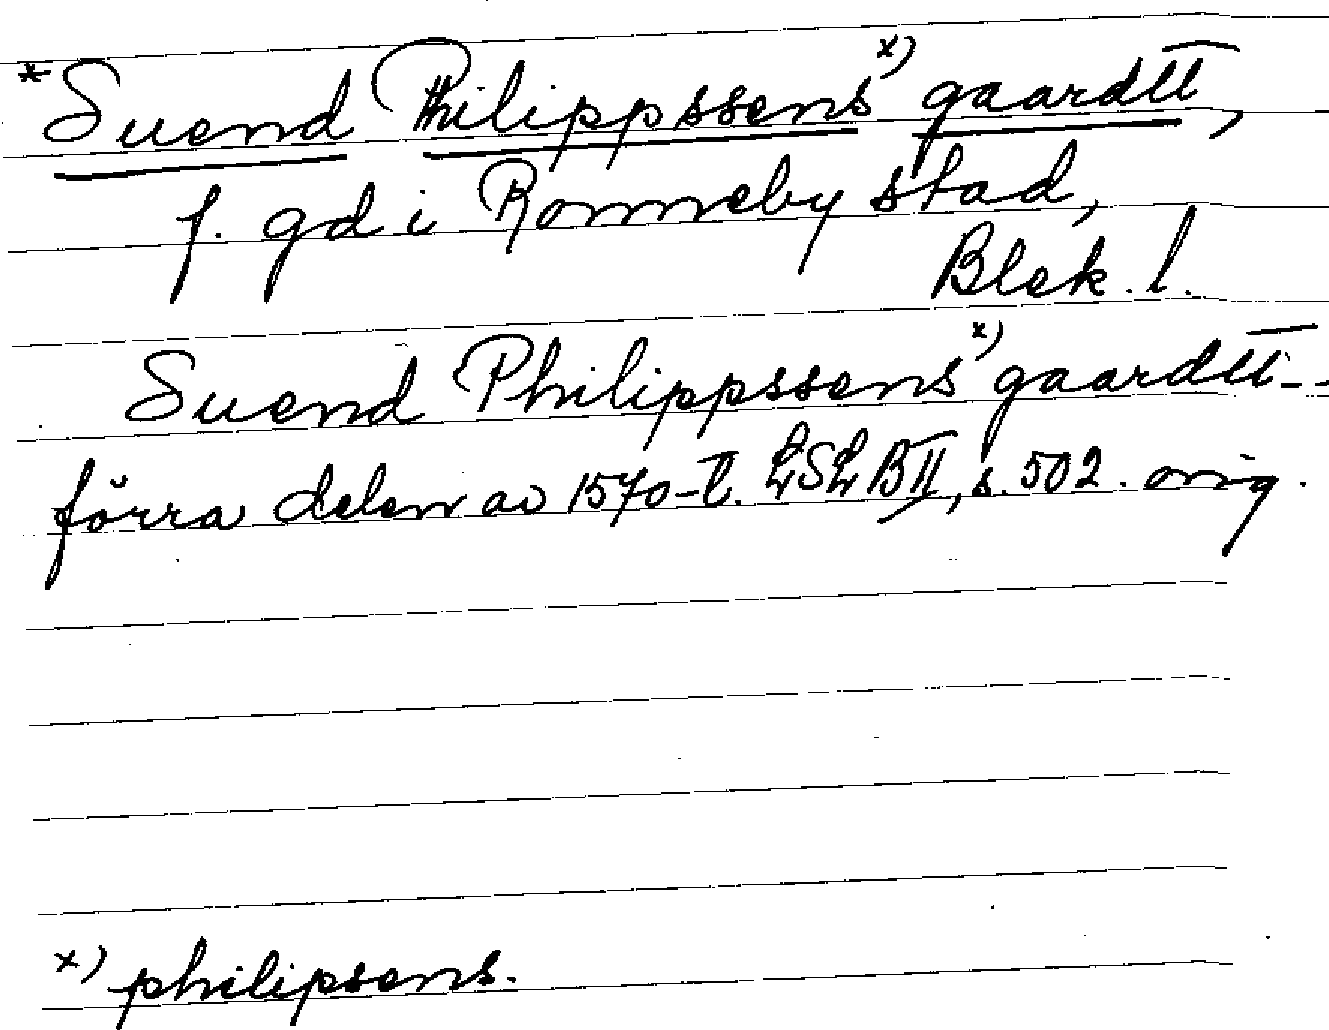 * Suend Philippssens x) gaardtt,
f. gd i Ronneby stad,
Blek. l.
Suend Philippssens x) gaardtt--
förra delen av 1570-t. LSL BII, s. 502. orig.
x) philipsens.